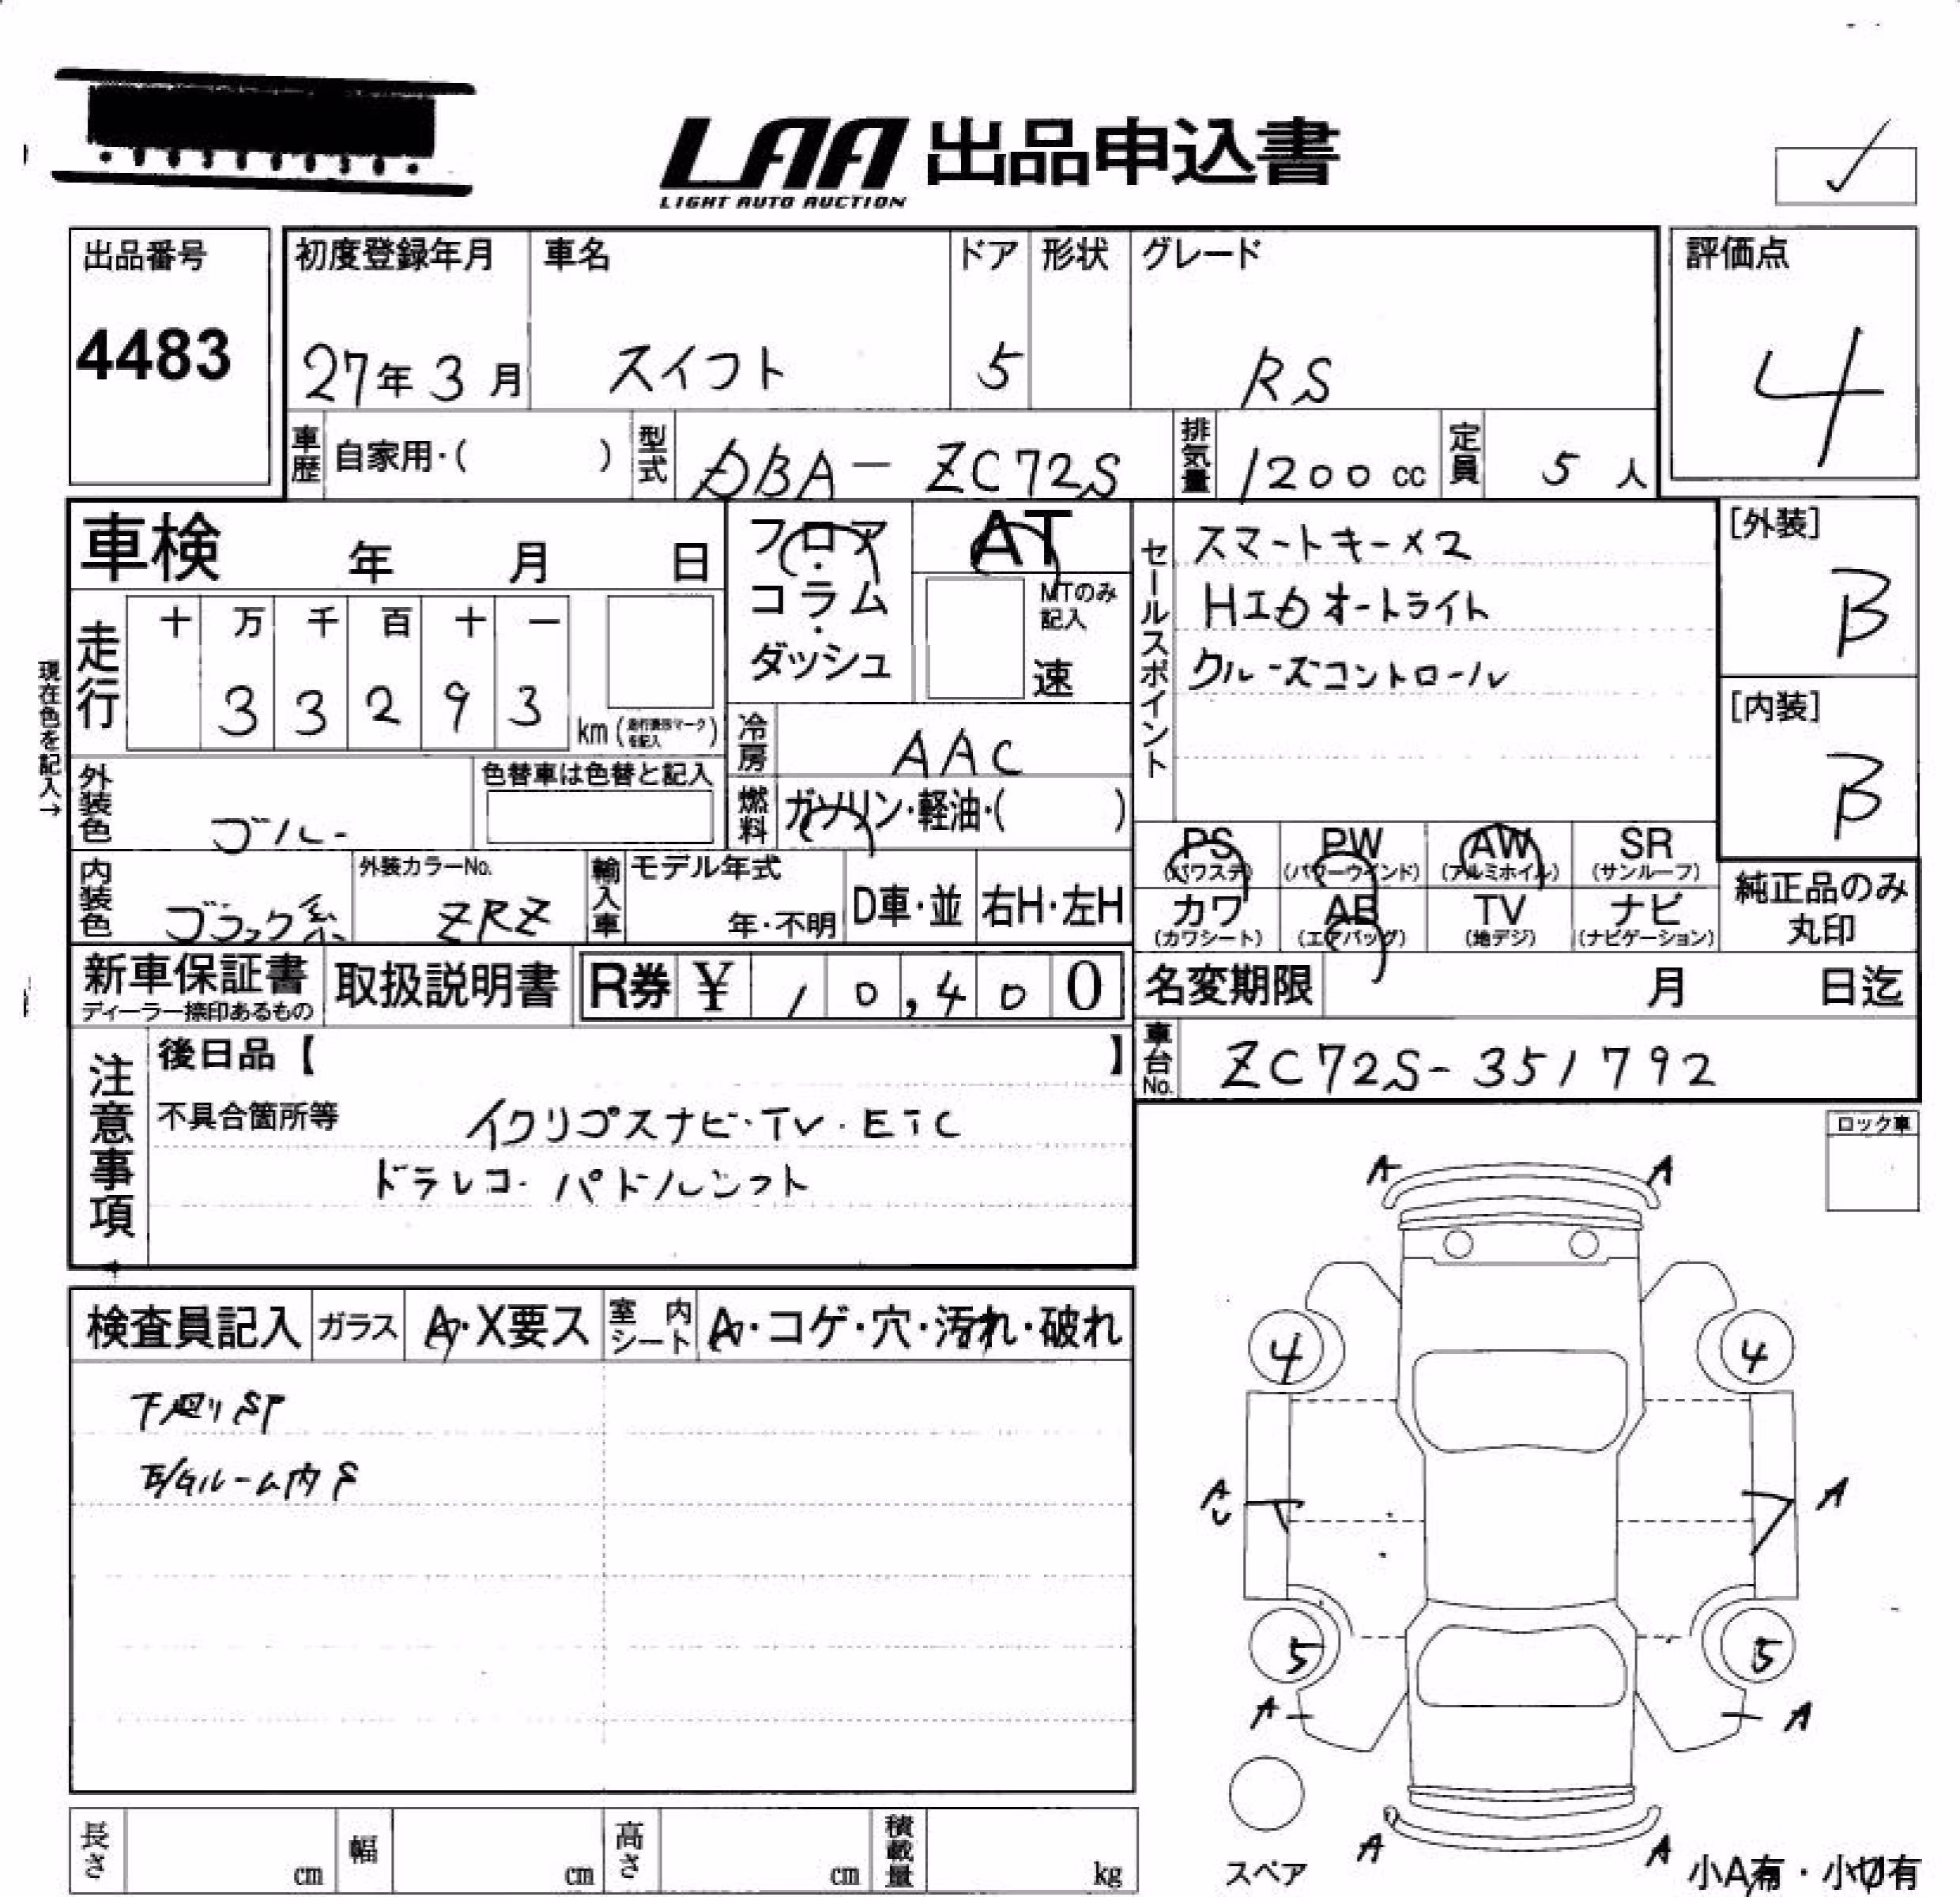 LAA 出品申込書
LIGHT AUTO AUCTION
出品番号
4483
初度登録年月 車名 ドア 形状 グレード
27年 3月 スイフト 5 RS
評価点
4
車歴 自家用・( ) 型式 DBA－ZC72S 排気量 1200cc 定員 5人
車検 年 月 日
フロア・コラム・ダッシュ
AT
MTのみ記入
速
セールスポイント
スマートキー×2
HIDオートライト
クルーズコントロール
[外装]
B
[内装]
B
現在色を記入→
走行 十 万 千 百 十 一
3 3 2 9 3 km(走行表示マークを記入)
冷房 AAC
外装色 ブルー 色替車は色替と記入
燃料 ガソリン・軽油・( )
内装色 ブラック系 外装カラーNo. ZRZ
輸入車 モデル年式 年・不明 D車・並 右H・左H
PS (パワステ) PW (パワーウインド) AW (アルミホイル) SR (サンルーフ)
カワ (カワシート) AB (エアバッグ) TV (地デジ) ナビ (ナビゲーション)
純正品のみ丸印
新車保証書 ディーラー捺印あるもの 取扱説明書 R券 ¥ 10,400
名変期限 月 日迄
車台No. ZC72S-351792
注意事項
後日品【 】
不具合箇所等 イクリプスナビ・TV・ETC
ドラレコ・パドルシフト
ロック車
A A
検査員記入 ガラス A・X要ス 室内シート A・コゲ・穴・汚れ・破れ
下廻りST
E/Gルーム内S
4 4
A U A
5 5
A A
スペア
A A
小A有・小U有
長さ cm 幅 cm 高さ cm 積載量 kg